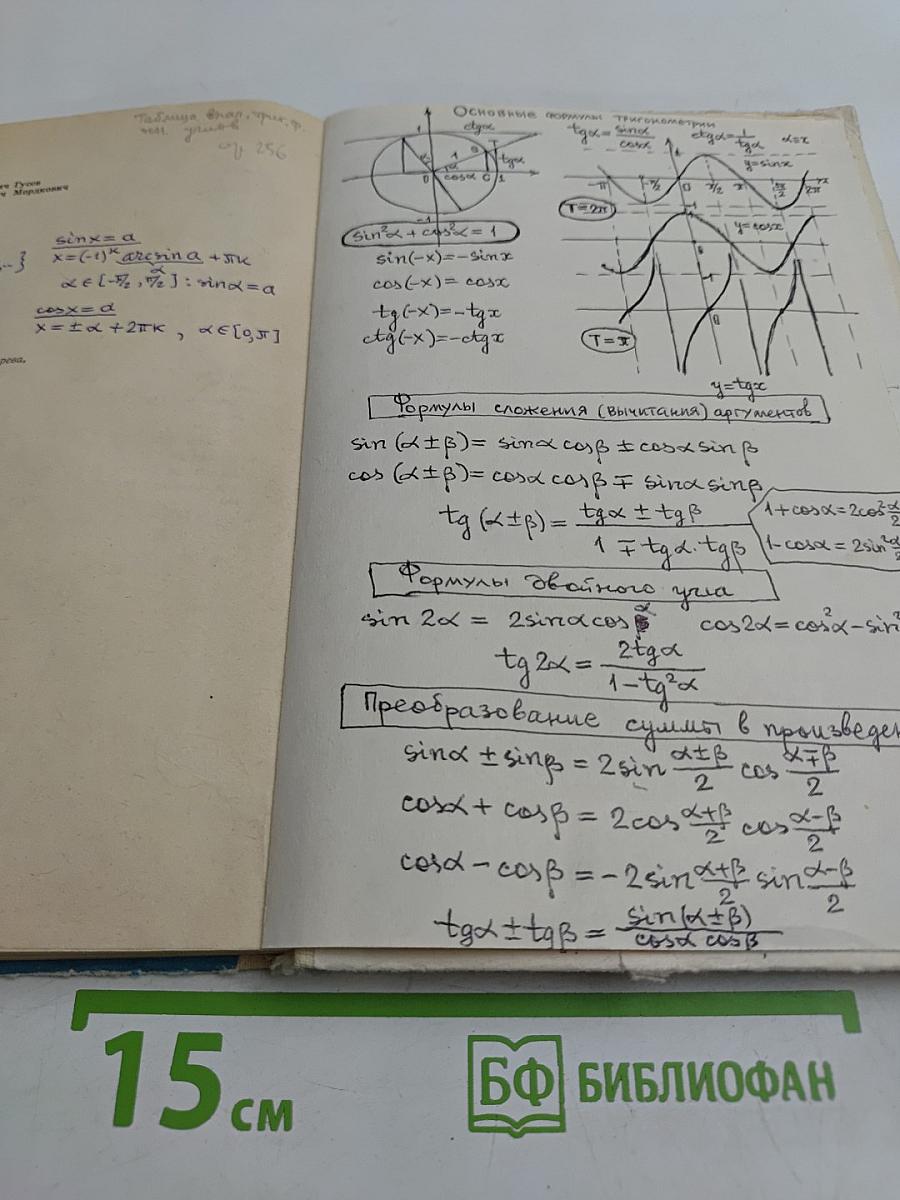 Таблица знач. триг. ф.
нек. углов
стр 256
ич Гусев
ч Мордкович
sinx=a
x=(-1)ᵏ arcsina + πk
α
α∈[-π/2, π/2] : sinα=a
cosx=a
x=±α+2πк, α∈[0,π]
рева,
Основные формулы тригонометрии
ctgα
1
1
α
tgα
0
cosα
C
1
-1
tgα=sinα/cosα
ctgα=1/tgα
α=x
y=sinx
-π
-π/2
0
π/2
π
2π
T=2π
y=cosx
sin²α+cos²α=1
sin(-x)=-sinx
cos(-x)=cosx
tg(-x)=-tgx
ctg(-x)=-ctgx
0
T=π
y=tgx
Формулы сложения (вычитания) аргументов
sin(α±β)= sinα cosβ ± cosα sinβ
cos(α±β)= cosα cosβ ∓ sinα sinβ
tg(α±β)= (tgα ± tgβ)/(1 ∓ tgα·tgβ)
1+cosα=2cos²α/2
1-cosα=2sin²α/2
Формулы двойного угла
sin2α = 2sinαcosα
cos2α=cos²α-sin²
tg2α= 2tgα/(1-tg²α)
Преобразование суммы в произведен
sinα ± sinβ = 2sin (α±β)/2 cos (α∓β)/2
cosα + cosβ = 2cos (α+β)/2 cos (α-β)/2
cosα - cosβ = -2sin (α+β)/2 sin (α-β)/2
tgα ± tgβ = sin(α±β)/(cosα cosβ)
15 см
БФ БИБЛИОФАН